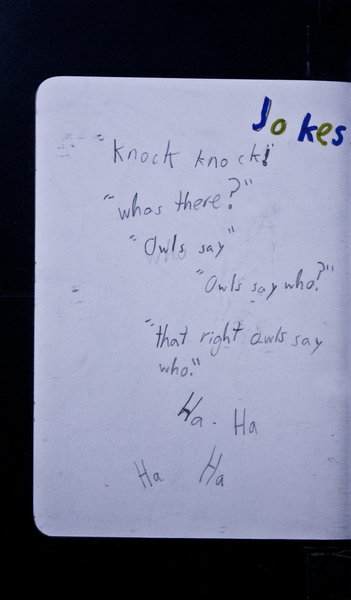 Jokes
"Knock knock!"
"whos there?"
"Owls say"
"Owls say who?"
"that right owls say
who."
Ha. Ha
Ha Ha